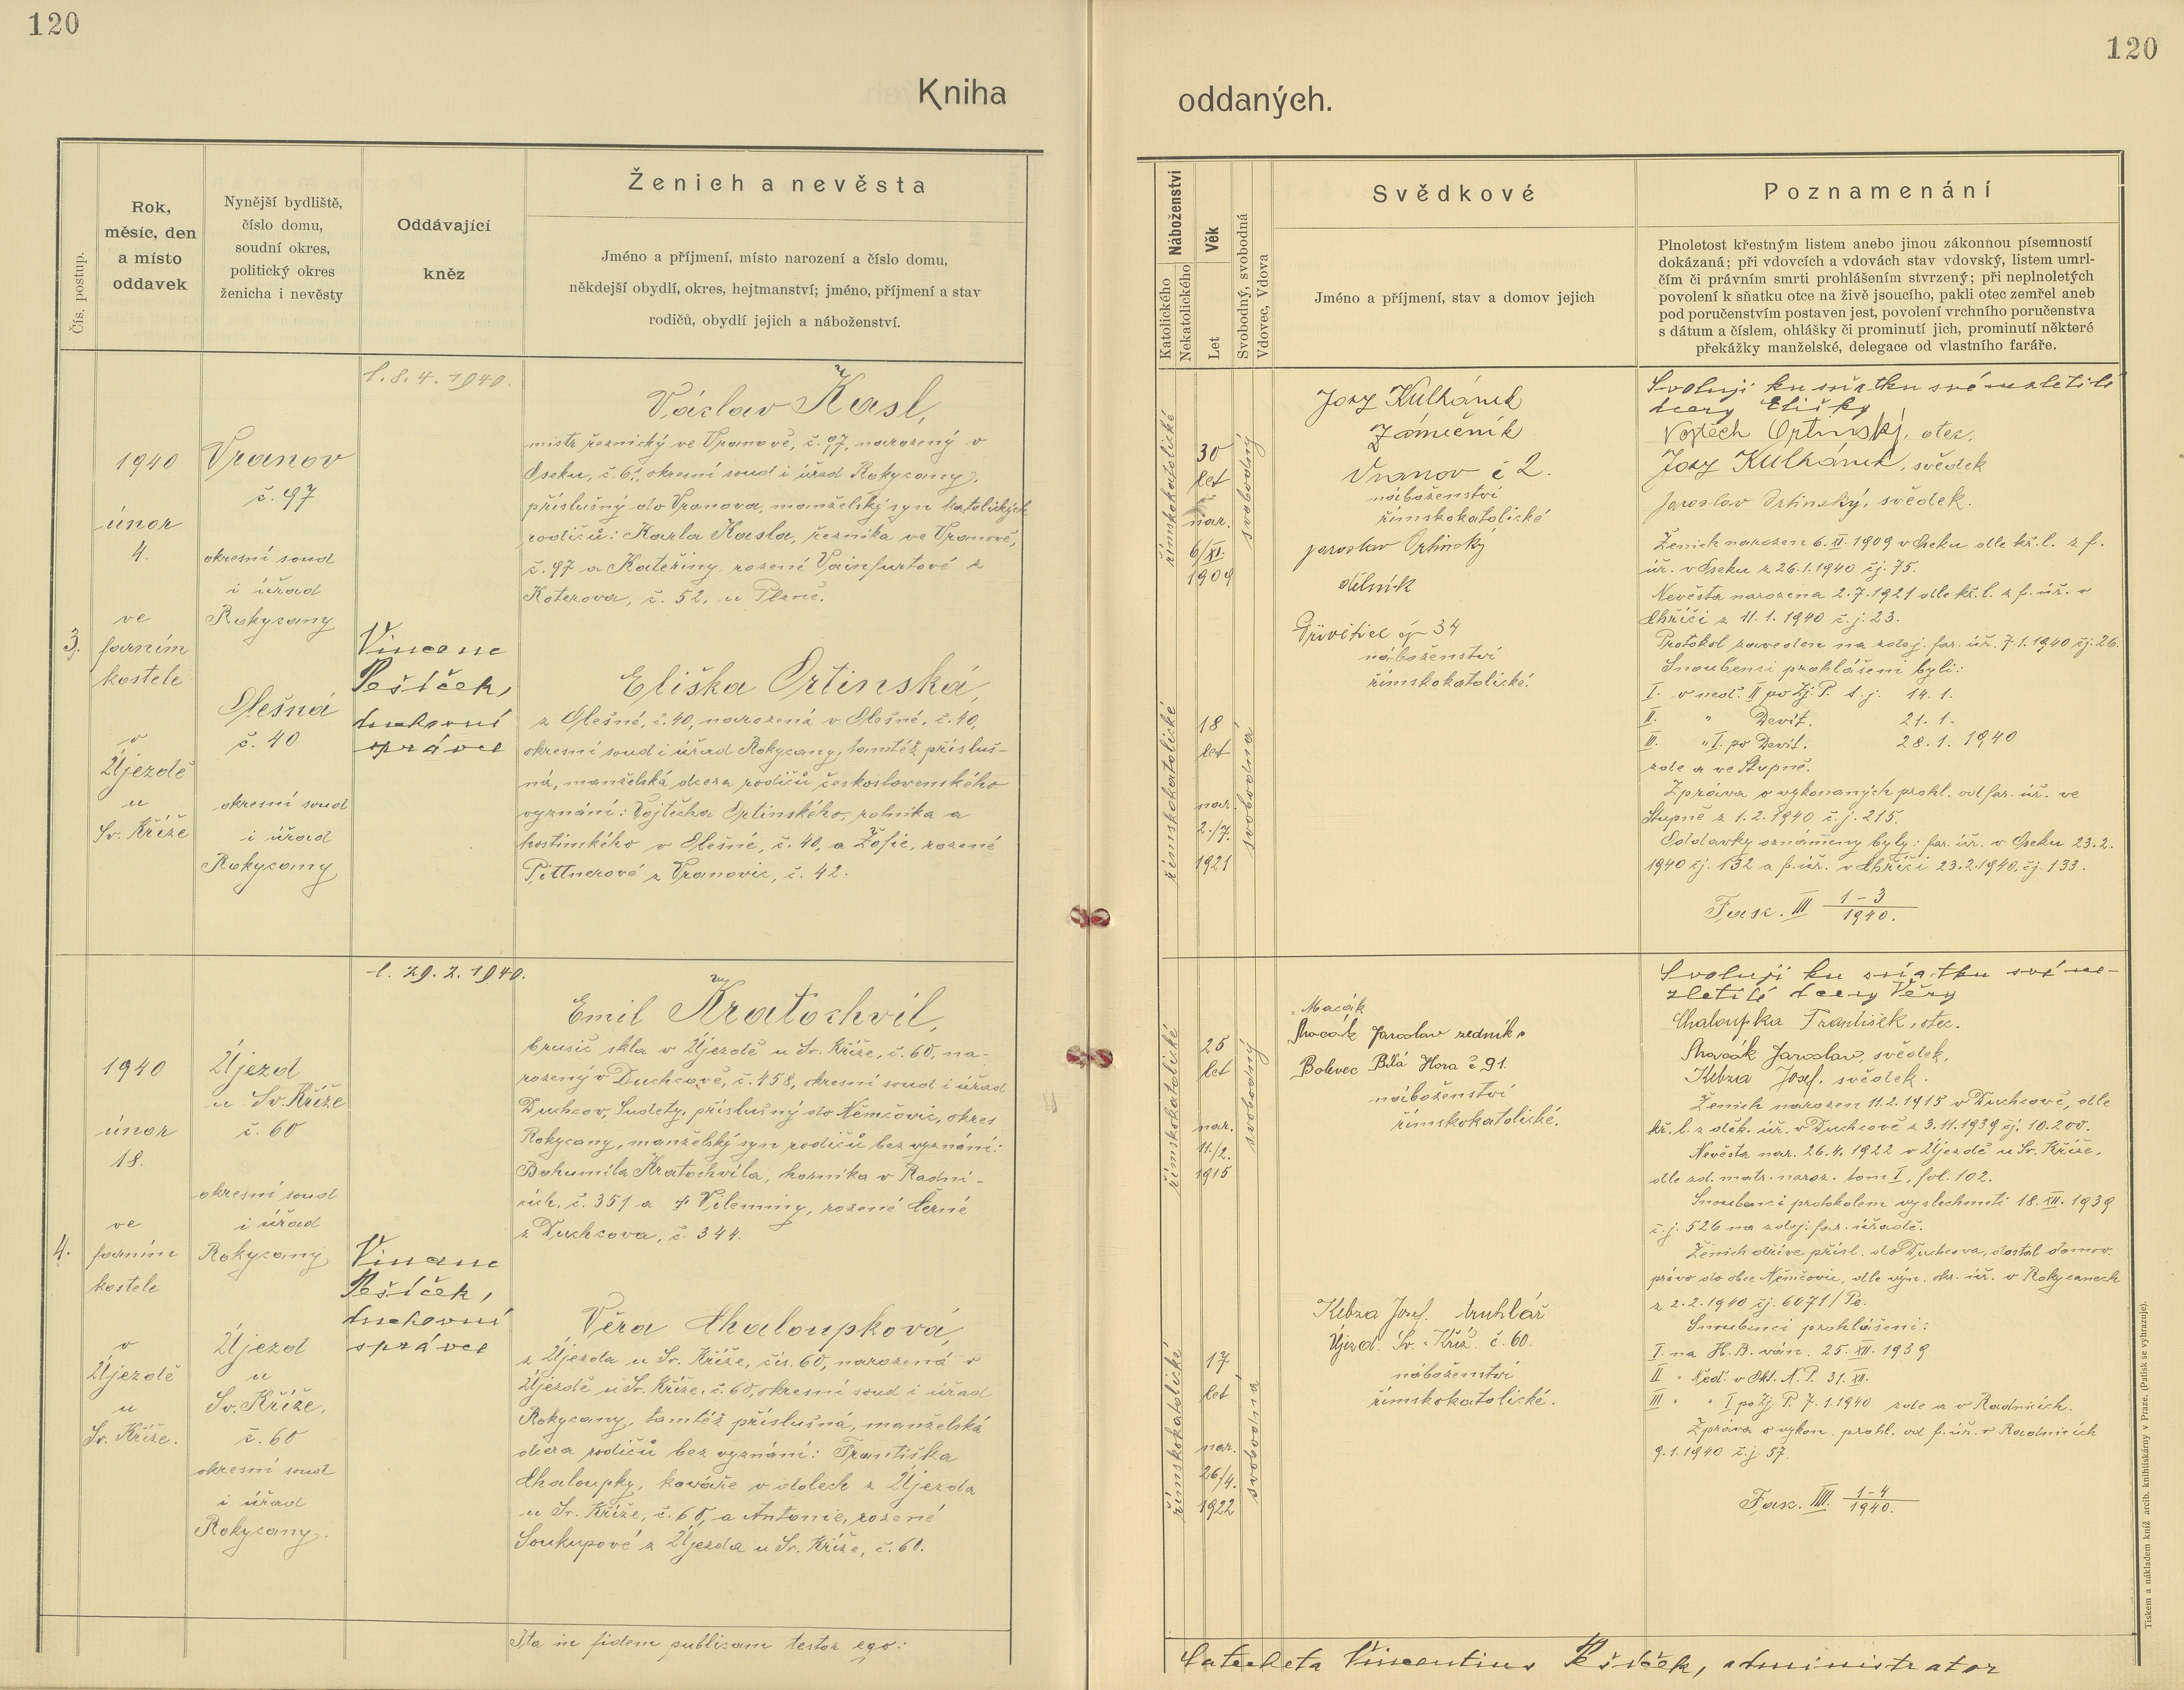 120
120
Kniha
oddaných.
Čís. postup.
Rok,
měsíc, den
a místo
oddavek
Nynější bydliště,
číslo domu,
soudní okres,
politický okres
ženicha i nevěsty
Oddávající
kněz
Ženich a nevěsta
Jméno a příjmení, místo narození a číslo domu,
někdejší obydlí, okres, hejtmanství; jméno, příjmení a stav
rodičů, obydlí jejich a náboženství.
Náboženství
Katolického
Nekatolického
Věk
Let
Svobodný, svobodná
Vdovec, Vdova
Svědkové
Jméno a příjmení, stav a domov jejich
Poznamenání
Plnoletost křestným listem anebo jinou zákonnou písemností
dokázaná; při vdovcích a vdovách stav vdovský, listem umrl-
čím či právním smrti prohlášením stvrzený; při neplnoletých
povolení k sňatku otce na živě jsoucího, pakli otec zemřel aneb
pod poručenstvím postaven jest, povolení vrchního poručenstva
s dátum a číslem, ohlášky či prominutí jich, prominutí některé
překážky manželské, delegace od vlastního faráře.
3.
1940
únor
4.
ve
farním
kostele
v
Újezdě
u
Sv. Kříže
Vranov
č. 97
okresní soud
i úřad
Rokycany
Olešná
č. 40
okresní soud
i úřad
Rokycany
l. 8. 4. 1940.
Vincenc
Pešíček,
duchovní
správce
Václav Kasl,
mistr řeznický ve Vranově, č. 97, narozený v
Oseku, č. 6, okresní soud i úřad Rokycany,
příslušný do Vranova, manželský syn katolických
rodičů: Karla Kasla, řezníka ve Vranově,
č. 97 a Kateřiny, rozené Vainfurtové z
Koterova, č. 52, u Plzně.
Eliška Ortinská,
z Olešné, č. 40, narozená v Olešné, č. 40,
okresní soud i úřad Rokycany, tamtéž přísluš-
ná, manželská dcera rodičů československého
vyznání: Vojtěcha Ortinského, rolníka a
hostinského v Olešné, č. 40, a Žofie, rozené
Pittnerové z Vranovic, č. 42.
římskokatolické
30
let
nar.
6/XI.
1909
svobodný
římskokatolické
18
let
nar.
2./7.
1921
svobodná
Josef Kulhánek
Zámečník
Vranov č 2.
náboženství
římskokatolické
Jaroslav Ortinský
dělník
Přívětice čp 34
náboženství
římskokatolické.
Svoluji ku sňatku své nezletilé
dcery Elišky
Vojtěch Ortinský, otec.
Josef Kulhánek, svědek
Jaroslav Ortinský, svědek.
Ženich narozen 6. XI. 1909 v Oseku dle kř. l. z f.
úř. v Oseku z 26.1.1940 čj. 75.
Nevěsta narozena 2.7.1921 dle kř. l. z f. úř. v
Chříči z 11.1.1940 č. j. 23.
Protokol zaveden na zdej. far. úř. 7.1.1940 čj. 26.
Snoubenci prohlášeni byli:
I. v neď. II po Zj. P. t. j. 14. 1.
II. " Devít. 21. 1.
III. " I. po Devít. 28. 1. 1940
zde a ve Stupně.
Zpráva o vykonaných prohl. od far. úř. ve
Stupně z 1.2.1940 č. j. 215.
Oddavky oznámeny byly: far. úř. v Oseku 23.2.
1940 čj. 132 a f. úř. v Chříči 23.2.1940, čj. 133.
Fasc. III 1-3
1940.
4.
1940
únor
18.
ve
farním
kostele
v
Újezdě
u
Sv. Kříže.
Újezd
u Sv. Kříže
č. 60
okresní soud
i úřad
Rokycany
Újezd
u
Sv. Kříže,
č. 60
okresní soud
i úřad
Rokycany.
l. 29. 2. 1940.
Vincenc
Pešíček,
duchovní
správce
Emil Kratochvíl,
brusič skla v Újezdě u Sv. Kříže, č. 60, na-
rozený v Duchcově, č. 458, okresní soud i úřad
Duchcov, Sudety, příslušný do Němčovic, okres
Rokycany, manželský syn rodičů bez vyznání:
Bohumila Kratochvíla, horníka v Radni-
cích, č. 351 a † Vilemíny, rozené Černé
z Duchcova, č. 344.
Věra Chaloupková,
z Újezda u Sv. Kříže, čís. 60, narozená v
Újezdě u Sv. Kříže, č. 60, okresní soud i úřad
Rokycany, tamtéž příslušná, manželská
dcera rodičů bez vyznání: Františka
Chaloupky, kováře v dolech z Újezda
u Sv. Kříže, č. 60, a Antonie, rozené
Soukupové z Újezda u Sv. Kříže, č. 60.
římskokatolické
25
let
nar.
11./2.
1915
svobodný
římskokatolické
17
let
nar.
26/4.
1922
svobodná
Macák
Macák Jaroslav zedník
Bolevec Bílá Hora č 91.
náboženství
římskokatolické.
Kebza Josef. truhlář
Újezd. Sv. Kříž. č. 60.
náboženství
římskokatolické.
Svoluji ku sňatku své ne-
zletilé dcery Věry
Chaloupka František, otec.
Macák Jaroslav, svědek,
Kebza Josef, svědek.
Ženich narozen 11.2.1915 v Duchcově, dle
kř. l. z děk. úř. v Duchcově z 3.11.1939 čj. 10.200.
Nevěsta nar. 26.4.1922 v Újezdě u Sv. Kříže,
dle zd. matr. naroz. tom I, fol. 102.
Snoubenci protokolem vyslechnuti 18. XII. 1939
č. j. 526 na zdejí. far. úřadě.
Ženich dříve přísl. do Duchcova, dostal domov.
právo do obce Němčovic, dle výn. okr. úř. v Rokycanech
z 2.2.1940 čj. 6071/Pe.
Snoubenci prohlášeni:
I. na H. B. ván. 25. XII. 1939
II " Něd. v Okt. N. P. 31. XII.
III " " I po Zj. P. 7.1.1940 zde a v Radnicích.
Zpráva o vykon. prohl. od f. úř. v Radnicích
9.1.1940 č. j. 57.
Fasc. IIII. 1-4
1940.
Ita in fidem publicam testor ego:
Catecheta Vincentius Pešíček, administrator
Tiskem a nákladem kníž. arcib. knihtiskárny v Praze. (Patisk se vyhrazuje).